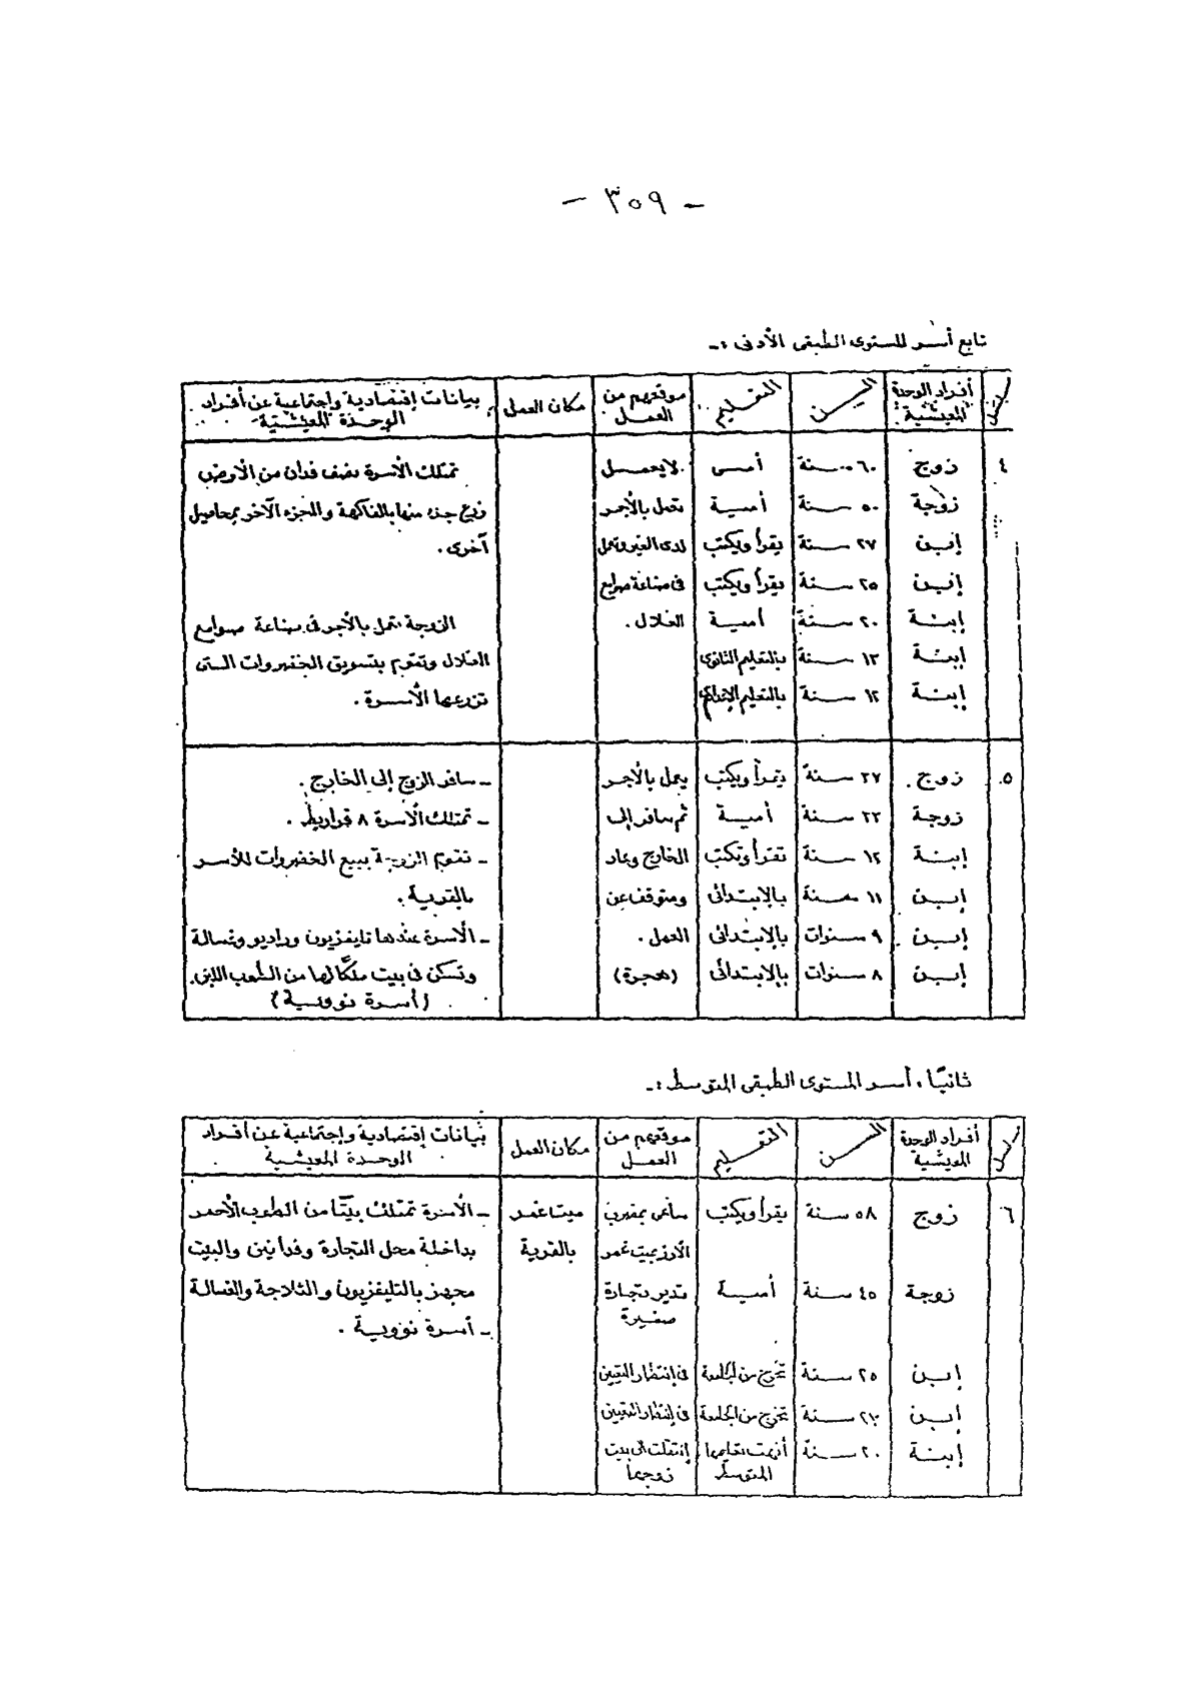 - ٣٥٩ -
تابع أسر المستوى الطبقى الأدنى :-
مسلسل | أفراد الوحدة المعيشية | السن | التعليم | موقفهم من العمل | مكان العمل | بيانات إقتصادية وإجتماعية عن أفراد الوحدة المعيشية
٤ | زوج | ٦٠ سنة | أمى | لايعمل | | تمتلك الأسرة نصف فدان من الأرض
زوجة | ٥٠ سنة | أمية | تعمل بالأجر | | زرع جزء منها بالفاكهة والجزء الآخر بمحاصيل
إبن | ٢٧ سنة | يقرأ ويكتب | لدى الغير وتعمل | | آخرى .
إبن | ٢٥ سنة | يقرأ ويكتب | فى صناعة صوامع
إبنة | ٢٠ سنة | أمية | الغلال . | | الزوجة تعمل بالأجر فى صناعة صوامع
إبنة | ١٣ سنة | بالتعليم الثانوى | | | الغلال وتقوم بتسويق الخضروات التى
إبنة | ١٢ سنة | بالتعليم الإعدادى | | | تزرعها الأسرة .
٥ | زوج | ٢٧ سنة | يقرأ ويكتب | يعمل بالأجر | | - سافر الزوج إلى الخارج .
زوجة | ٢٣ سنة | أمية | ثم سافر إلى | | - تمتلك الأسرة ٨ قراريط .
إبنة | ١٢ سنة | تقرأ وتكتب | الخارج وعاد | | - تقوم الزوجة ببيع الخضروات للأسر
إبن | ١١ سنة | بالإبتدائى | ومتوقف عن | | بالقرية .
إبن | ٩ سنوات | بالإبتدائى | العمل . | | - الأسرة عندها تليفزيون وراديو وغسالة
إبن | ٨ سنوات | بالإبتدائى | (هجرة) | | وتسكن فى بيت ملكًا لها من الطوب اللبن .
(أسرة نووية)
ثانيًا ، أسر المستوى الطبقى المتوسط :-
مسلسل | أفراد الوحدة المعيشية | السن | التعليم | موقفهم من العمل | مكان العمل | بيانات إقتصادية وإجتماعية عن أفراد الوحدة المعيشية
٦ | زوج | ٥٨ سنة | يقرأ ويكتب | ساعى بمضرب | ميت غمر | - الأسرة تمتلك بيتًا من الطوب الأحمر
الأرز بميت غمر | بالقرية | بداخلة محل التجارة وفدانين والبيت
زوجة | ٤٥ سنة | أمية | تدير تجارة | | مجهز بالتليفزيون والثلاجة والغسالة
صغيرة | | - أسرة نووية .
إبن | ٢٥ سنة | تخرج من الجامعة | فى إنتظار التعيين
إبن | سنة | تخرج من الجامعة | فى إنتظار التعيين
إبنة | ٢٠ سنة | أنهت تعليمها | إنتقلت الى بيت
المتوسط | زوجها